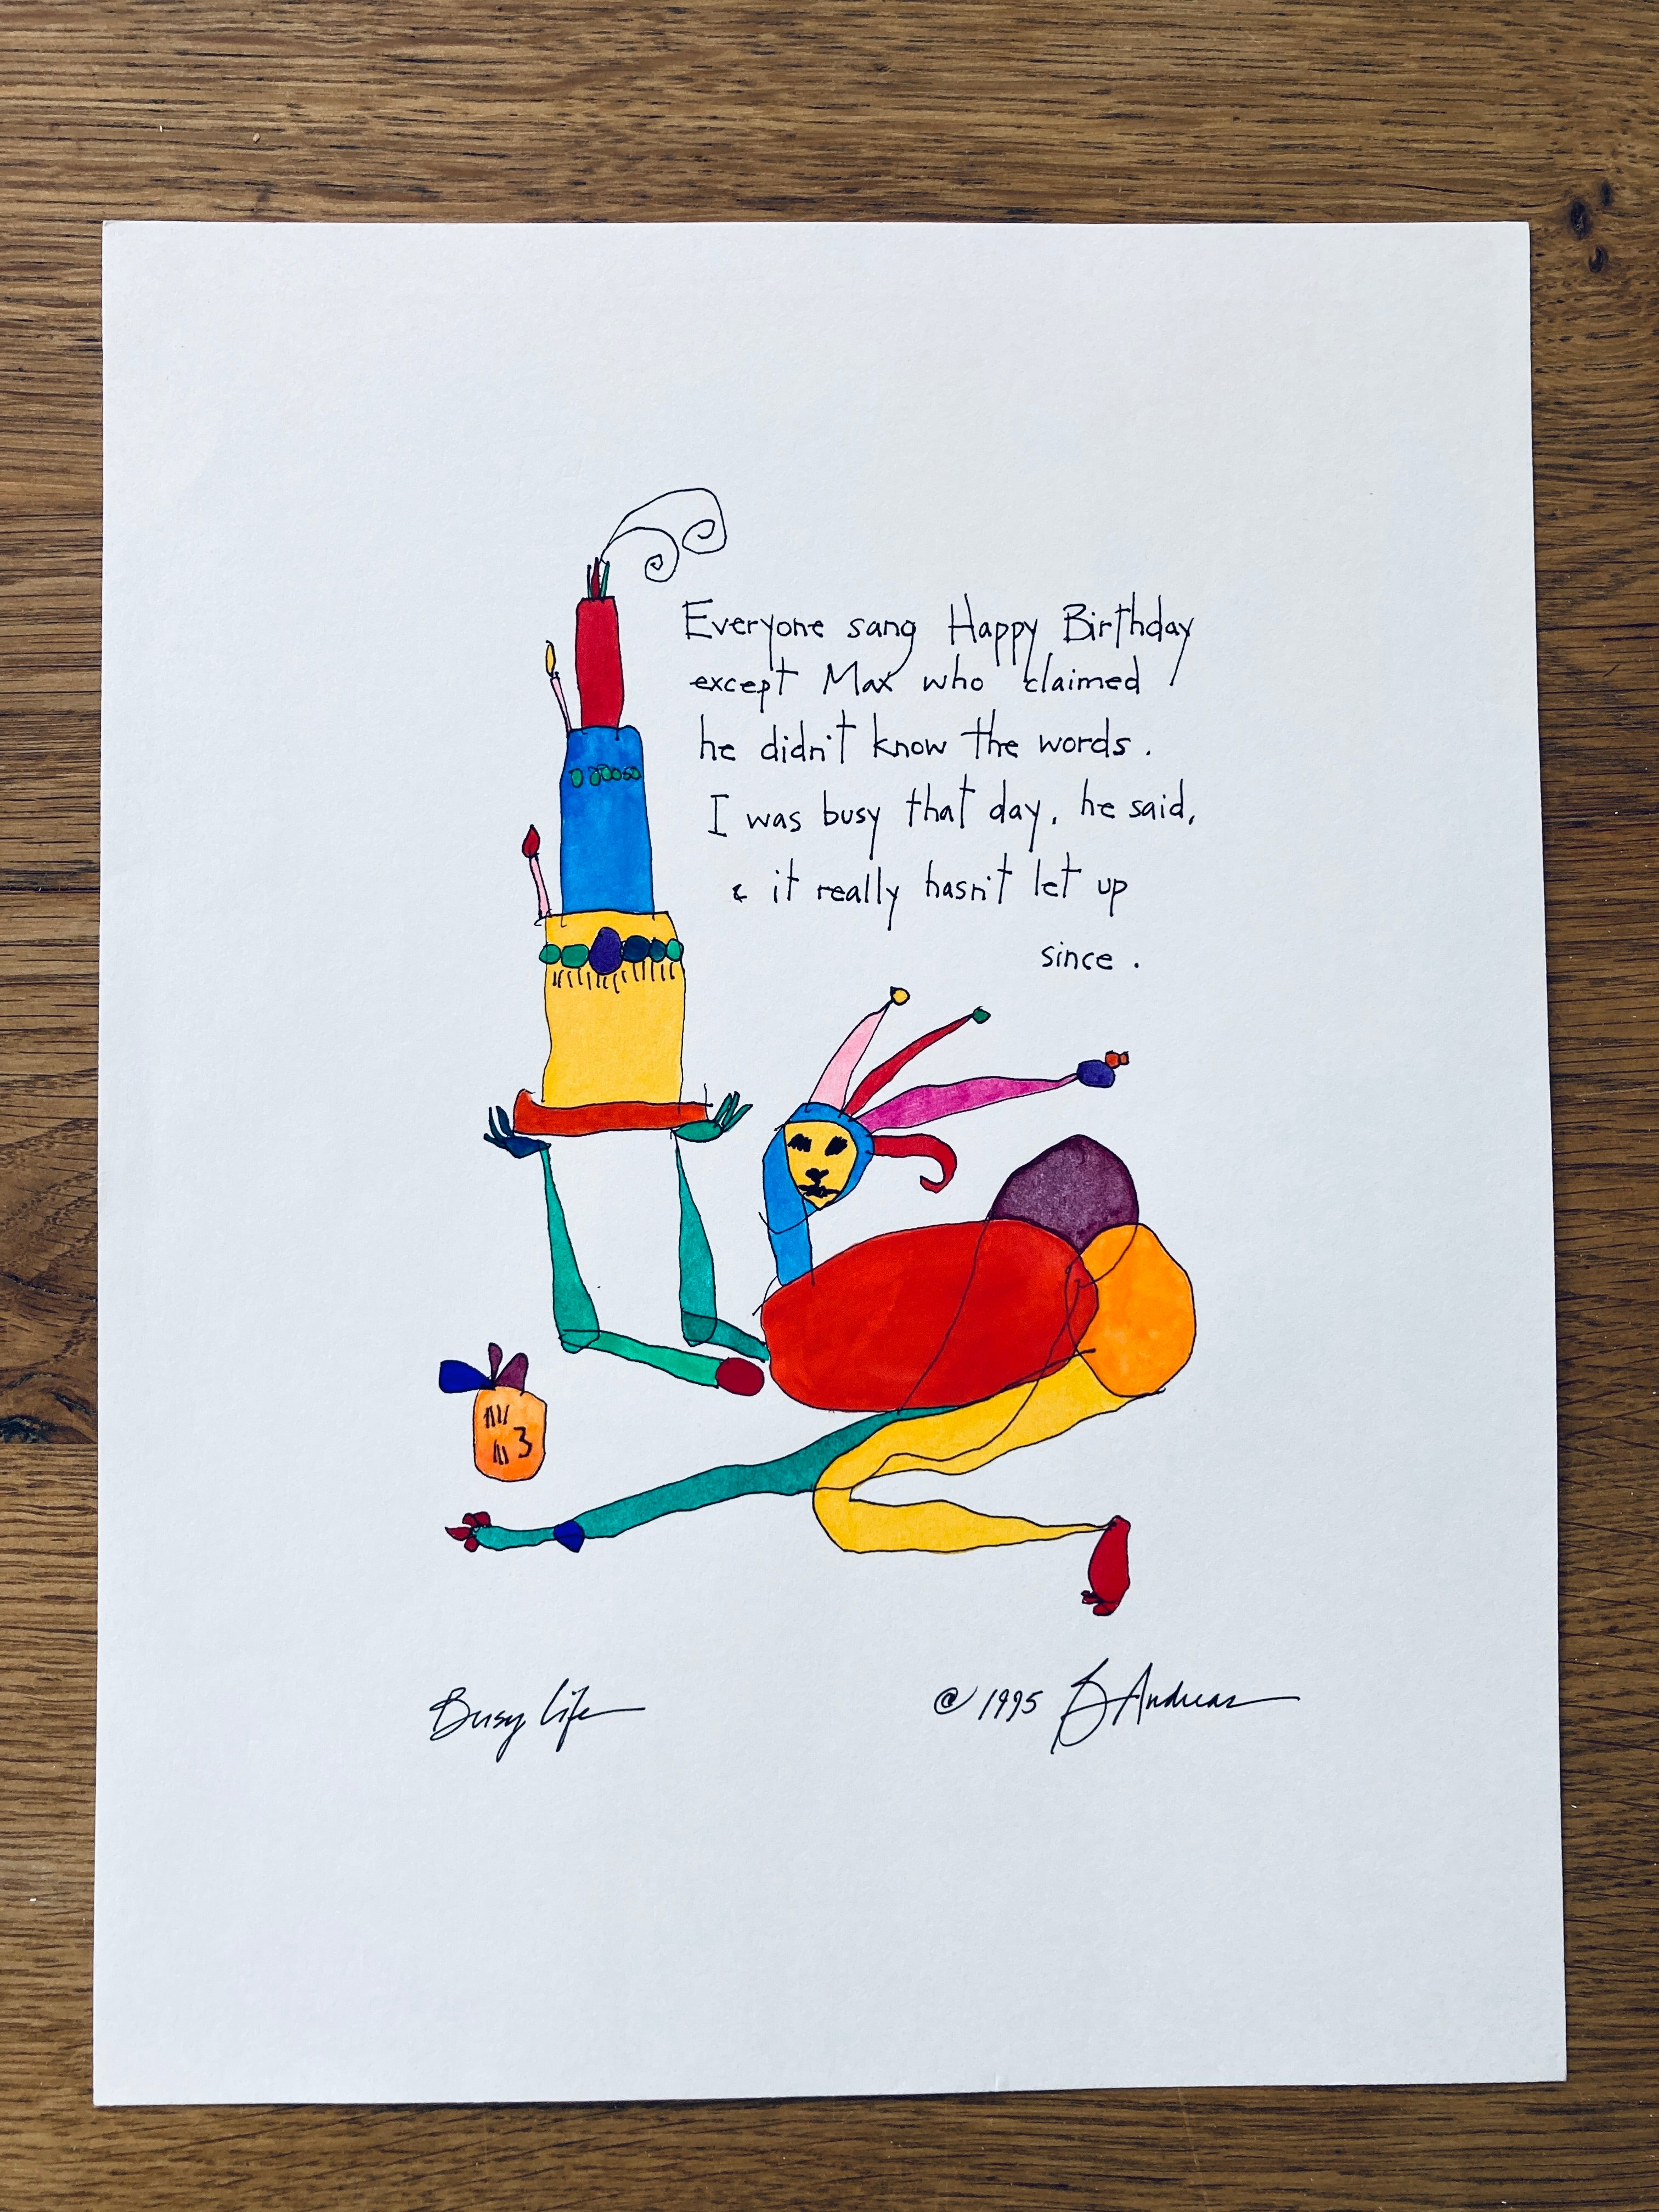 Everyone sang Happy Birthday
except Max who claimed
he didn't know the words.
I was busy that day, he said,
& it really hasn't let up
since.
3
Busy Life
© 1995 B Andreas